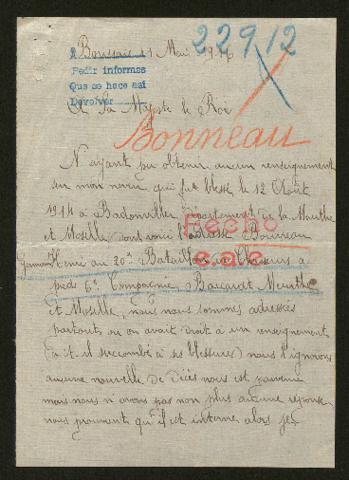 22912
11 Mai 1916
Pedir informes
Que se hace asi
Devolver
A Sa Majesté le Roi
Bonneau
N'ayant pu obtenir aucun renseignement
sur mon neveu qui fut blessé le 12 Août
1914 à Badonviller Département de la Meurthe
et Moselle dont voici l'adresse Bonneau
Henri au 20e Bataillon de Chasseurs à
pieds 6e Compagnie Baccarat Meurthe
et Moselle, nous nous sommes adressés
partout où on avait droit à un renseignement
a t il succombé à ses blessures nous l'ignorons
aucune nouvelle de décès nous est parvenue
mais nous n'avons pas non plus aucune réponse
nous prouvant qu'il est interné alors je
Hecho